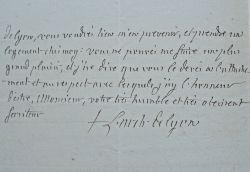 de lyon, vous voudrés bien m'en prevenir, et prendre un
logement chés moy. vous ne pouvés me faire un plus
grand plaisir, et j'ose dire que vous le devés a l'attache-
ment et au respect avec lesquels j'ay l'honneur
d'etre, Monsieur, votre très humble et très obeissant
serviteur
de lyon